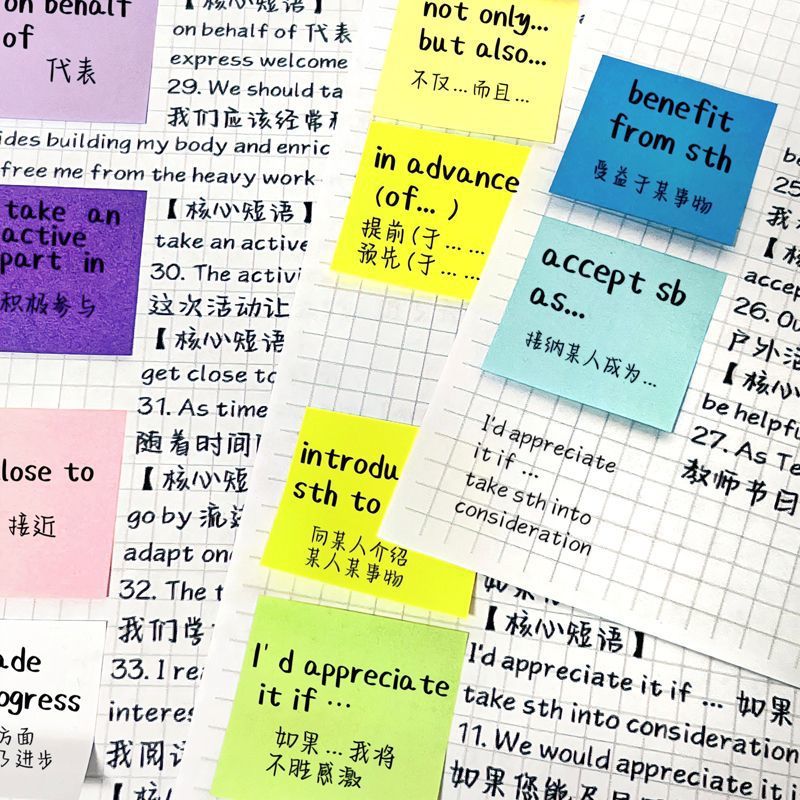 on behalf
of
代表
take an
active
part in
积极参与
close to
接近
方面
进步
【核心短语】
on behalf of 代表
express welcome
29. We should ta
我们应该经常
ides building my body and enric
free me from the heavy work
【核心短语】
take an active
30. The activi
这次活动让
【核心短语
get close to
31. As time
随着时间
【核心短
go by 流逝
adapt one
32. The t
我们学
33. I rea
interes
我阅读
【核心
not only...
but also...
不仅...而且...
in advance
(of... )
提前(于... ...
预先(于... ...
introdu
sth to
向某人介绍
某人某事物
I'd appreciate
it if ...
如果...我将
不胜感激
【核心短语】
I'd appreciate it if ... 如果
take sth into consideration
11. We would appreciate it i
如果您能及
benefit
from sth
受益于某事物
accept sb
as...
接纳某人成为...
I'd appreciate
it if ...
take sth into
consideration
be
25
我
【核
accep
26. Ou
户外活
【核心
be helpfu
27. As Te
教师节日